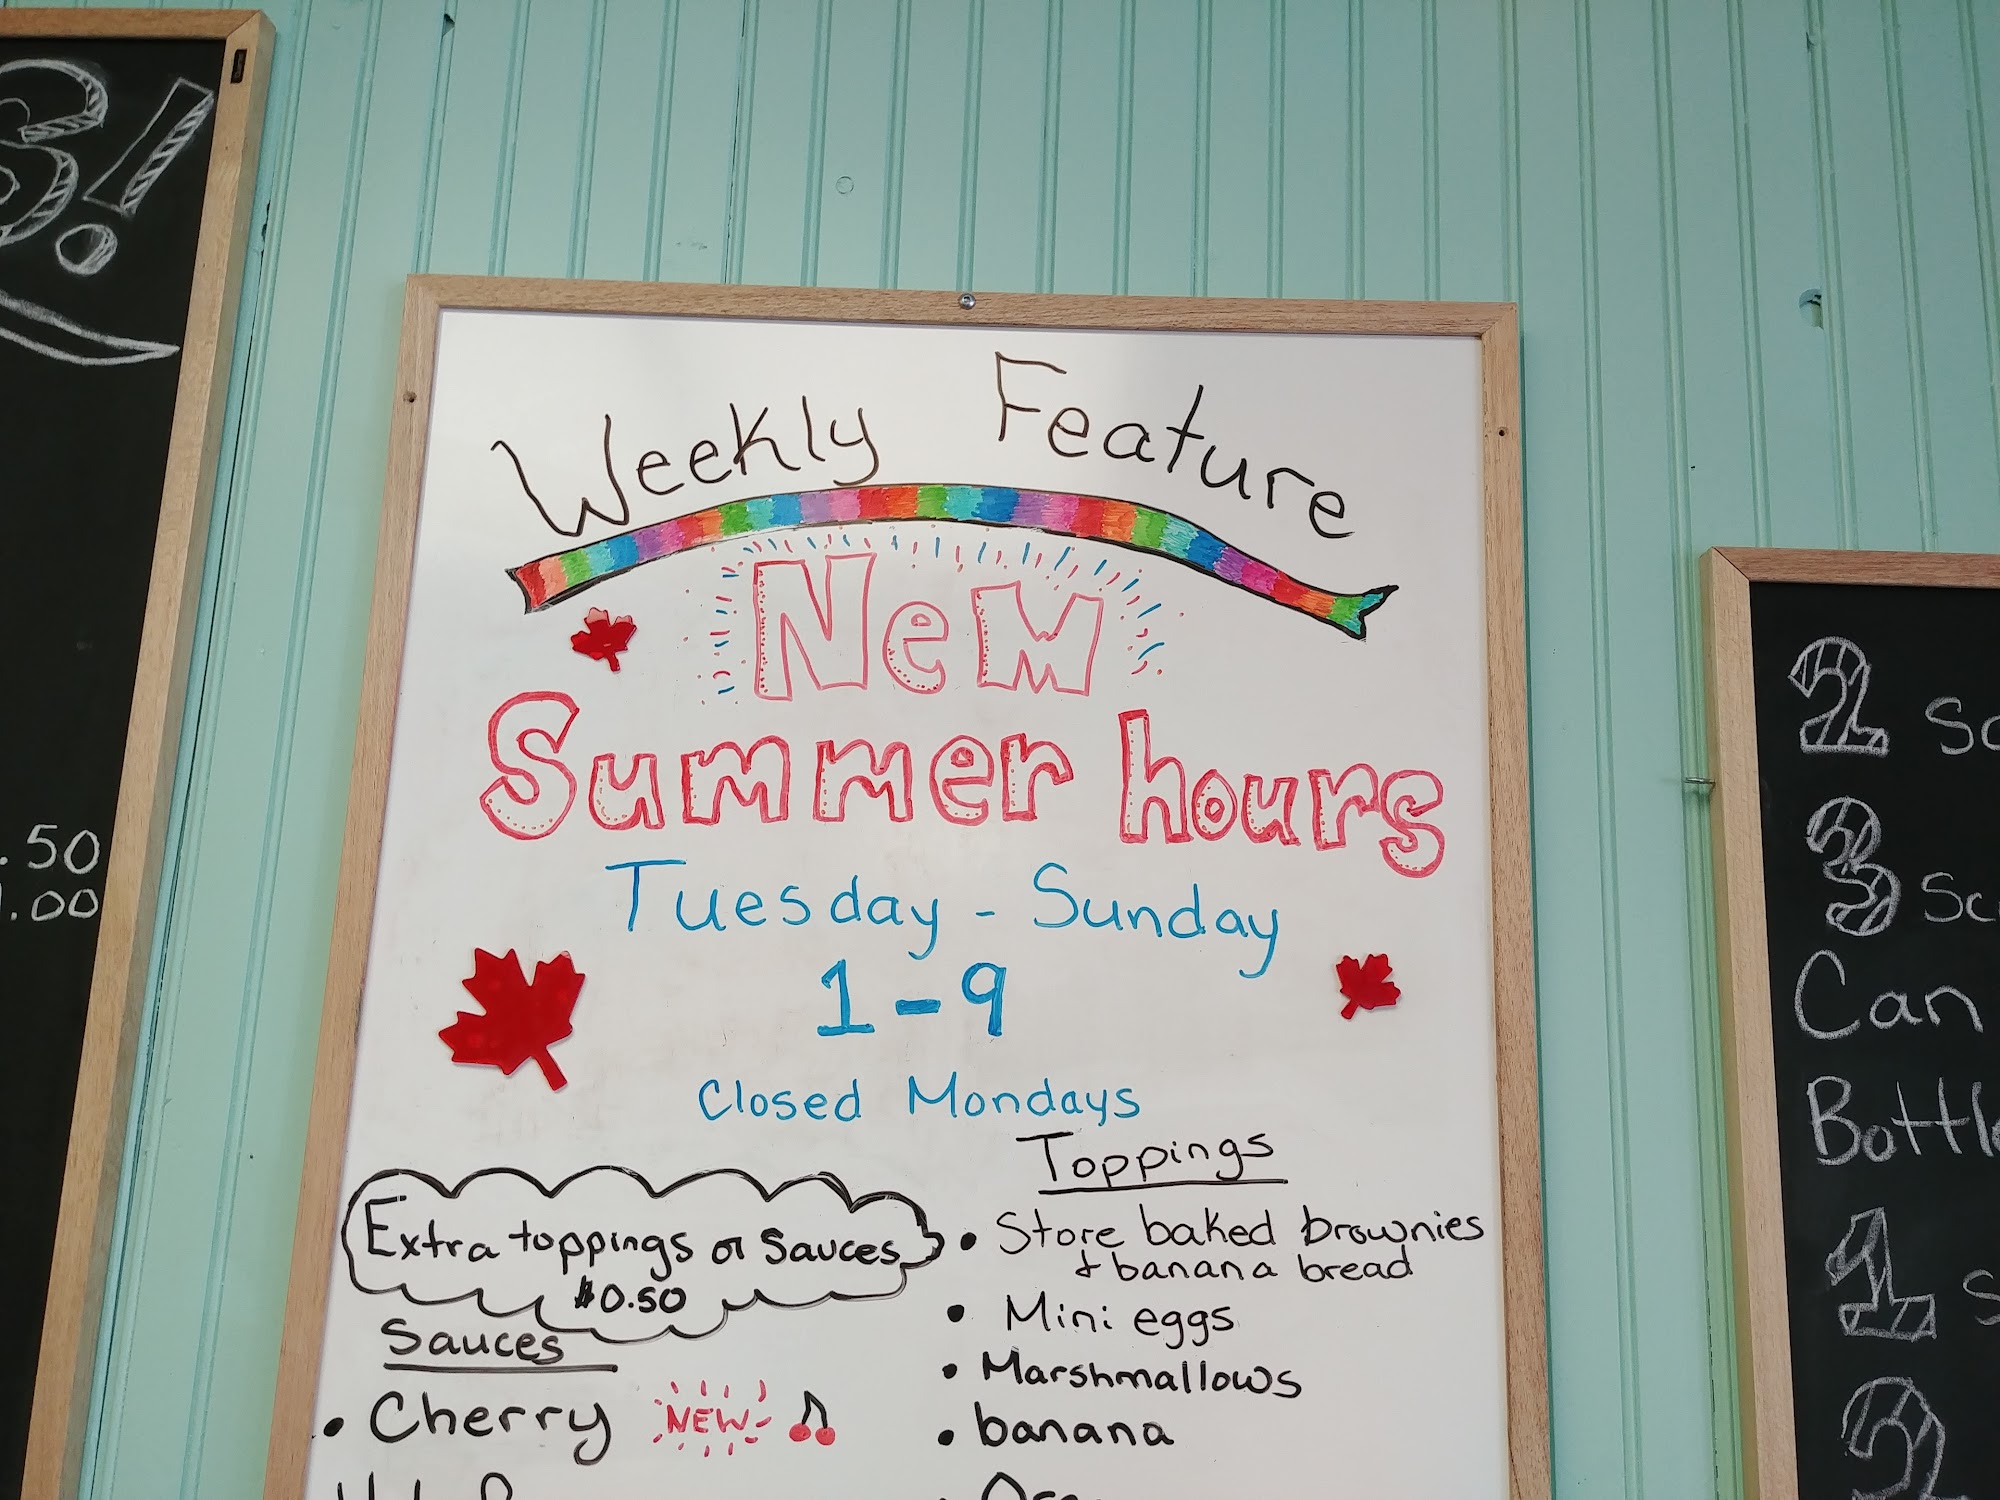 S!
.50
1.00
Weekly Feature
New
Summer hours
Tuesday - Sunday
1-9
Closed Mondays
Extra toppings or Sauces
$0.50
Sauces
• Cherry NEW
Toppings
• Store baked brownies
& banana bread
• Mini eggs
• Marshmallows
• banana
2
3
Can
1
2